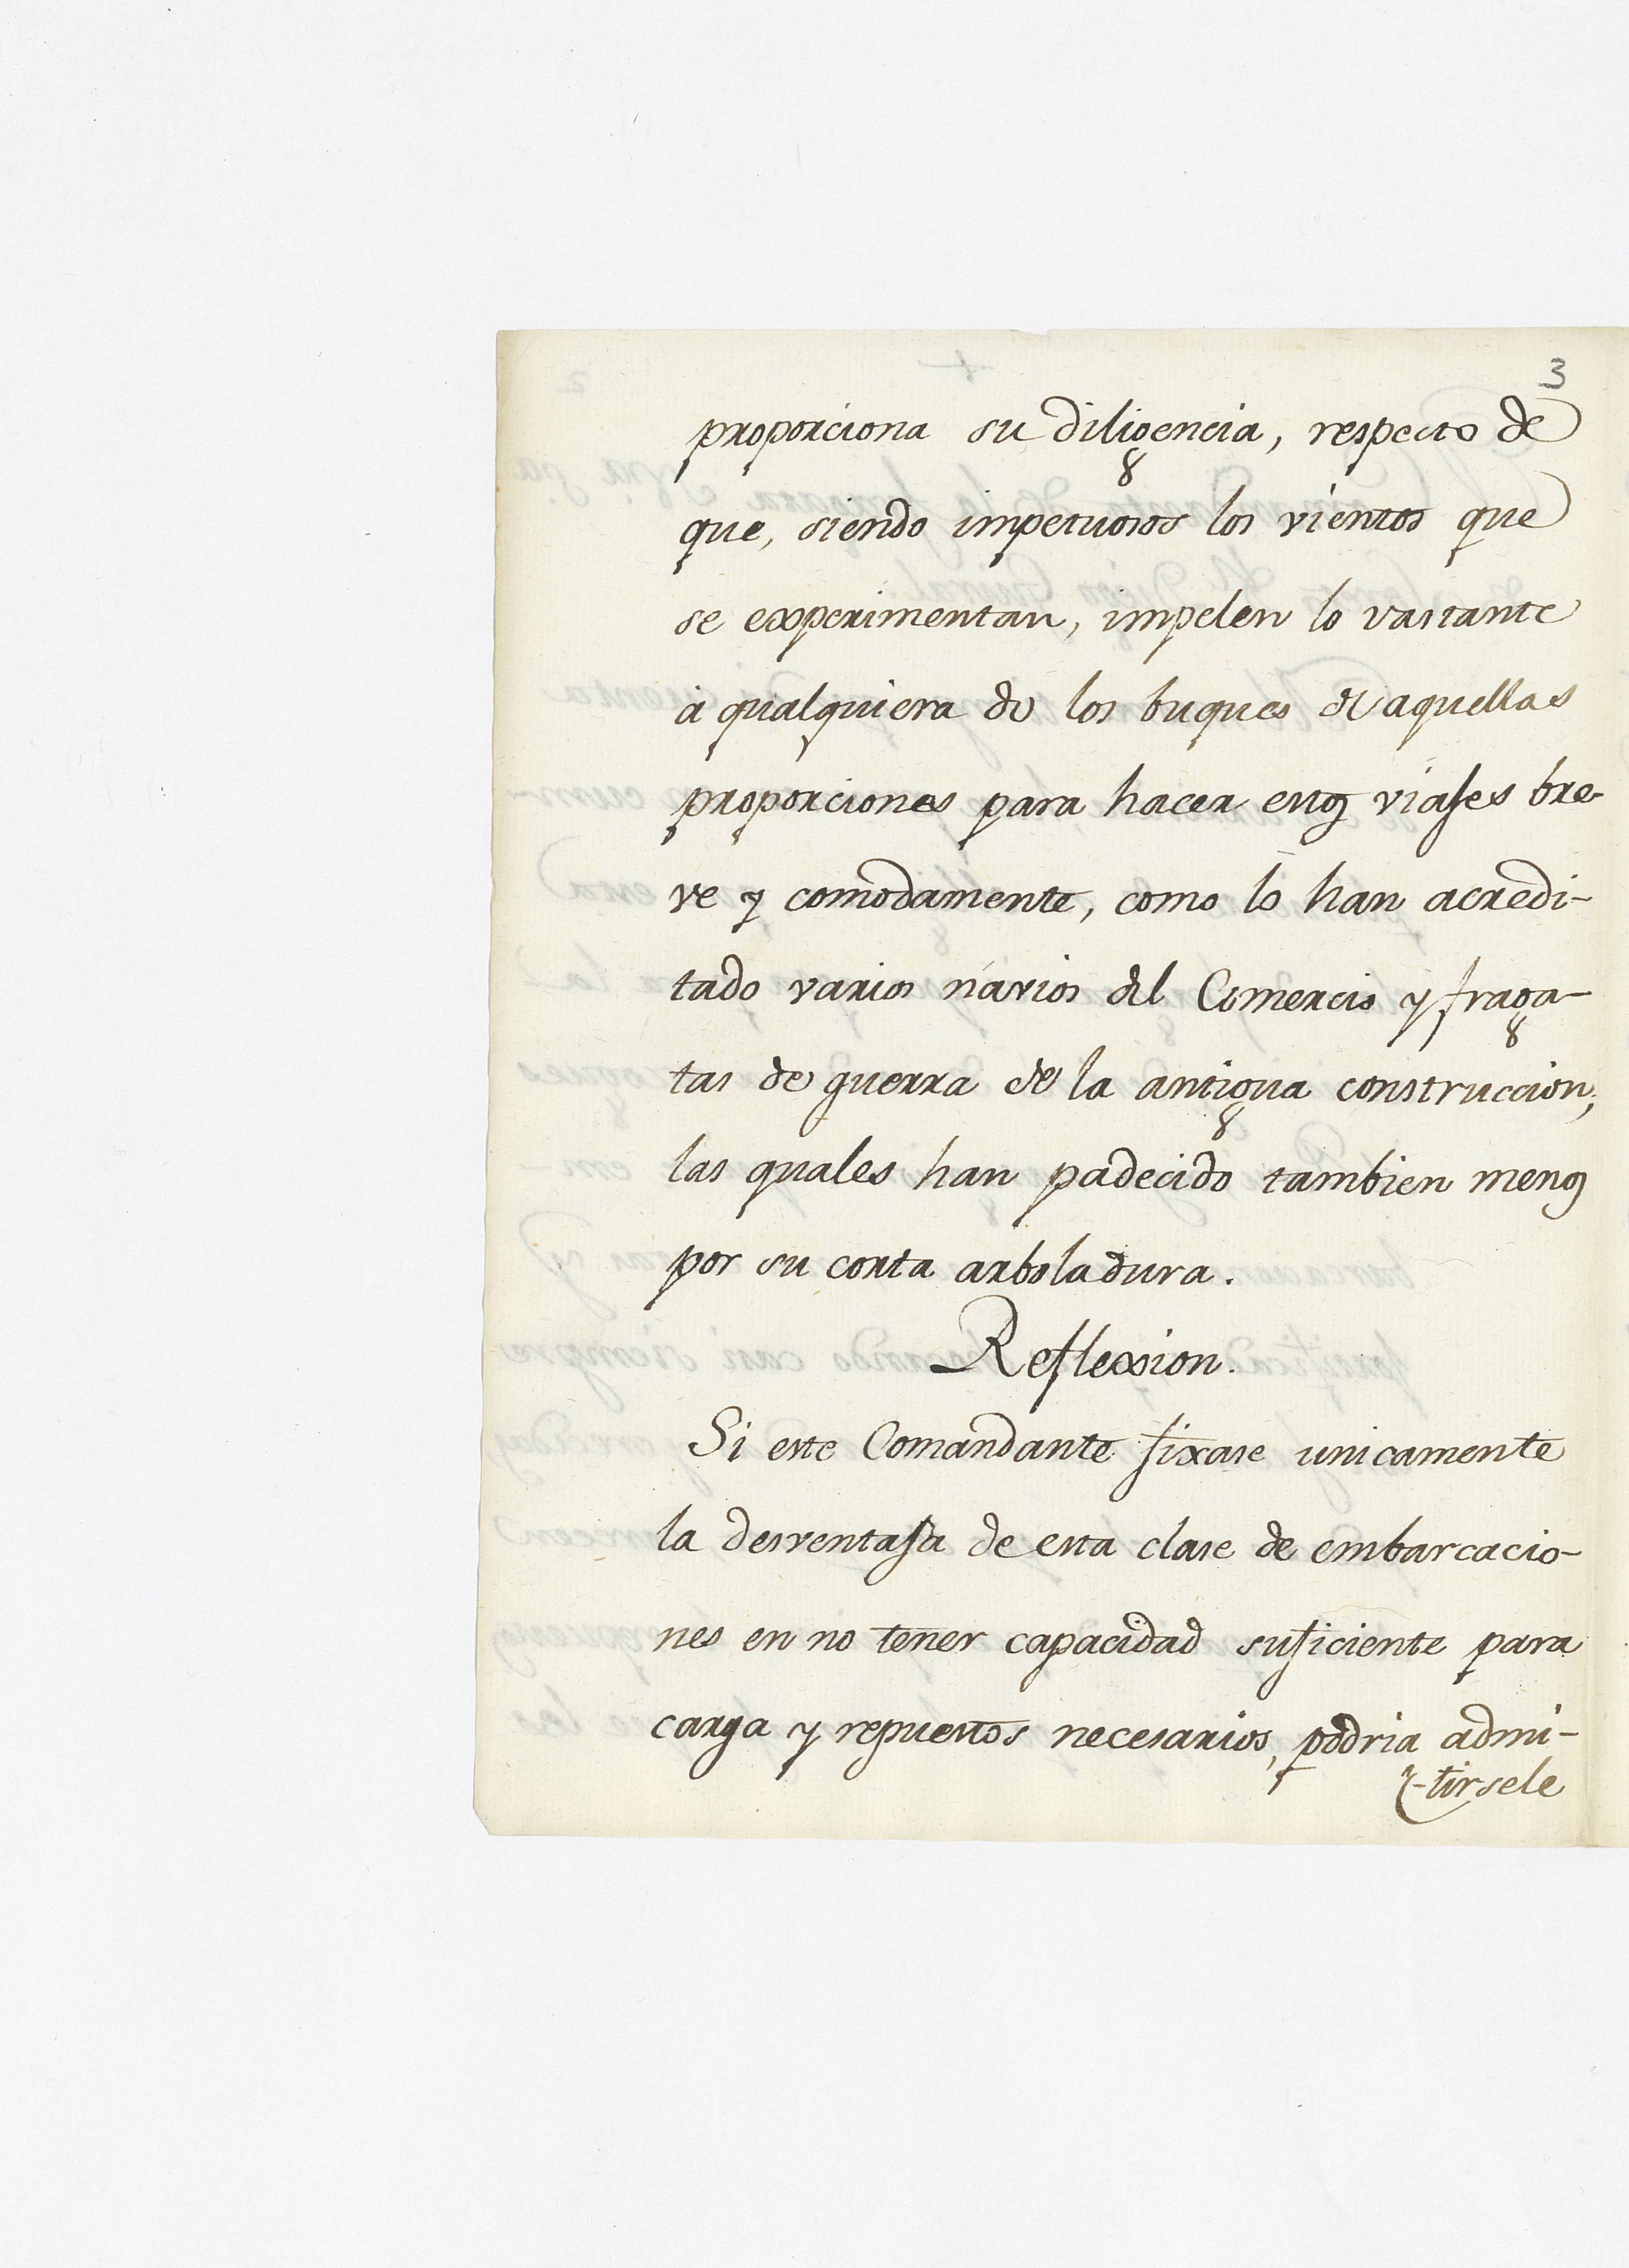 3
proporciona su diligencia, respecto de
que, siendo impetuosos los vientos que
se experimentan, impelen lo vastante
à qualquiera de los buques de aquellas
proporciones para hacer estos viajes bre-
ve y comodamente, como lo han acredi-
tado varios navios del Comercio y fraga-
tas de guerra de la antigua construccion,
las quales han padecido tambien menos
por su corta arboladura.
Reflexion.
Si este Comandante fixase unicamente
la desventaja de esta clase de embarcacio-
nes en no tener capacidad suficiente para
carga y repuestos necesarios, podria admi-
-tirsele